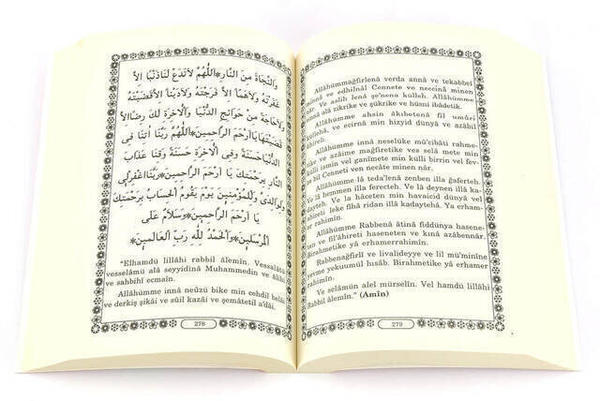 وَالنَّجَاةَ مِنَ النَّارِ اَللّٰهُمَّ لَا تَدَعْ لَنَا ذَنْبًا اِلَّا
غَفَرْتَهُ وَلَا هَمًّا اِلَّا فَرَّجْتَهُ وَلَا دَيْنًا اِلَّا قَضَيْتَهُ
وَلَا حَاجَةً مِنْ حَوَائِجِ الدُّنْيَا وَالْاٰخِرَةِ لَكَ رِضًا اِلَّا
قَضَيْتَهَا يَا اَرْحَمَ الرَّاحِمِينَ اَللّٰهُمَّ رَبَّنَا اٰتِنَا فِى
الدُّنْيَا حَسَنَةً وَفِى الْاٰخِرَةِ حَسَنَةً وَقِنَا عَذَابَ
النَّارِ بِرَحْمَتِكَ يَا اَرْحَمَ الرَّاحِمِينَ رَبَّنَا اغْفِرْ لِى
وَلِوَالِدَىَّ وَلِلْمُؤْمِنِينَ يَوْمَ يَقُومُ الْحِسَابُ بِرَحْمَتِكَ
يَا اَرْحَمَ الرَّاحِمِينَ وَسَلَامٌ عَلَى
الْمُرْسَلِينَ وَالْحَمْدُ لِلّٰهِ رَبِّ الْعَالَمِينَ
"Elhamdü lillâhi rabbil âlemîn. Vessalâtü
vesselâmü alâ seyyidinâ Muhammedin ve alâ
ve sahbihî ecmaîn.
Allâhümme innâ neûzü bike min cehdil belâi
ve derkiş şikâi ve sûil kazâi ve şemâtetil a'dâi.
276
Allâhümmağfirlenâ verda annâ ve tekabbel
ve edhilnâl Cennete ve neccinâ minen
Ve aslih lenâ şe'nena külleh. Allâhümme
alâ zikrike ve şükrike ve hüsni ibâdetik.
Allâhümme ahsin âkıbetenâ fil umûri
ve ecirnâ min hizyid dünyâ ve azâbil
Allâhümme innâ neselüke mû'cibâti rahme-
azâime mağfiretike ves selâ mete min
ismin vel ganîmete min külli birrin vel fev-
bil Cenneti ven necâte minan nâr.
Allâhümme lâ teda'lenâ zenben illa ğaferteh.
lâ hemmen illa ferecteh. Ve lâ deynen illâ
kadayteh. Ve la hâceten min havaicid dünyâ vel
leke fiha ridan illâ kadayteha. Ya erham-
rahimîn.
Allâhümme Rabbenâ âtinâ fiddünya hasene-
ve fil'âhireti haseneten ve kınâ azâbennâr.
Birahmetike yâ erhamerrahimîn.
Rabbenağfirlî ve livalideyye ve lil mü'minîne
yevme yekuumul hısâb. Birahmetike yâ erhamer-
rahimîn.
Ve selâmün alel mürselîn. Vel hamdü lillâhi
Rabbil âlemîn." (Amîn)
279